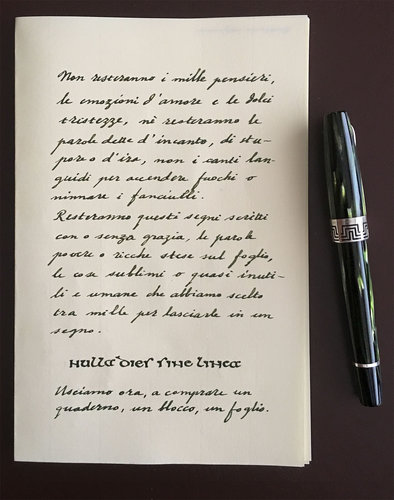 Non resteranno i mille pensieri,
le emozioni d'amore e le dolci
tristezze, nè resteranno le
parole dette d'incanto, di stu-
pore o d'ira, non i canti lan-
guidi per accendere fuochi o
ninnare i fanciulli.
Resteranno questi segni scritti
con o senza grazia, le parole
povere o ricche stese sul foglio,
le cose sublimi o quasi inuti-
li e umane che abbiamo scelto
tra mille per lasciarle in un
segno.
nulla dies sine linea
Usciamo ora, a comprare un
quaderno, un blocco, un foglio.